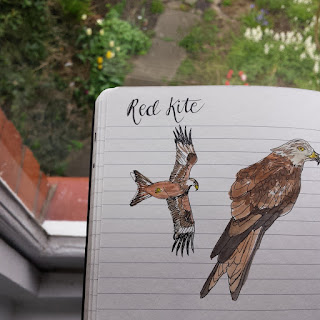 Red Kite